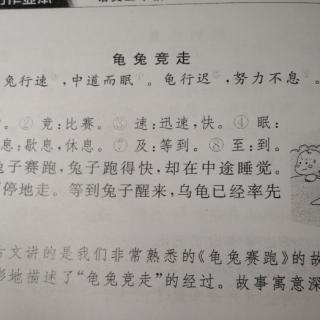 龟 兔 竞 走
兔行速,中道而眠。龟行迟,努力不息。
。② 竞:比赛。③ 速:迅速,快。④ 眠:
息:歇息,休息。⑦ 及:等到。⑧ 至:到。
兔子赛跑,兔子跑得快,却在中途睡觉。
停地走。等到兔子醒来,乌龟已经率先
古文讲的是我们非常熟悉的《龟兔赛跑》的故
形地描述了“龟兔竞走”的经过。故事寓意深